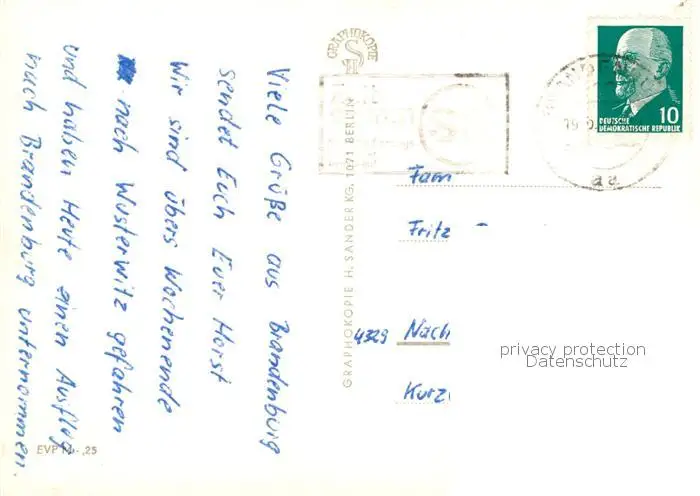 Viele Grüße aus Brandenburg
sendet Euch Euer Horst
Wir sind übers Wochenende
nach Wusterwitz gefahren
und haben Heute einen Ausflug
nach Brandenburg unternommen.
EVP M -,25
GRAPHOKOPIE
H S
GRAPHOKOPIE H. SANDER KG, 1071 BERLIN
DEUTSCHE
DEMOKRATISCHE REPUBLIK
10
19
aa
Fam
Fritz -
4329 Nach
Kurz
privacy protection
Datenschutz